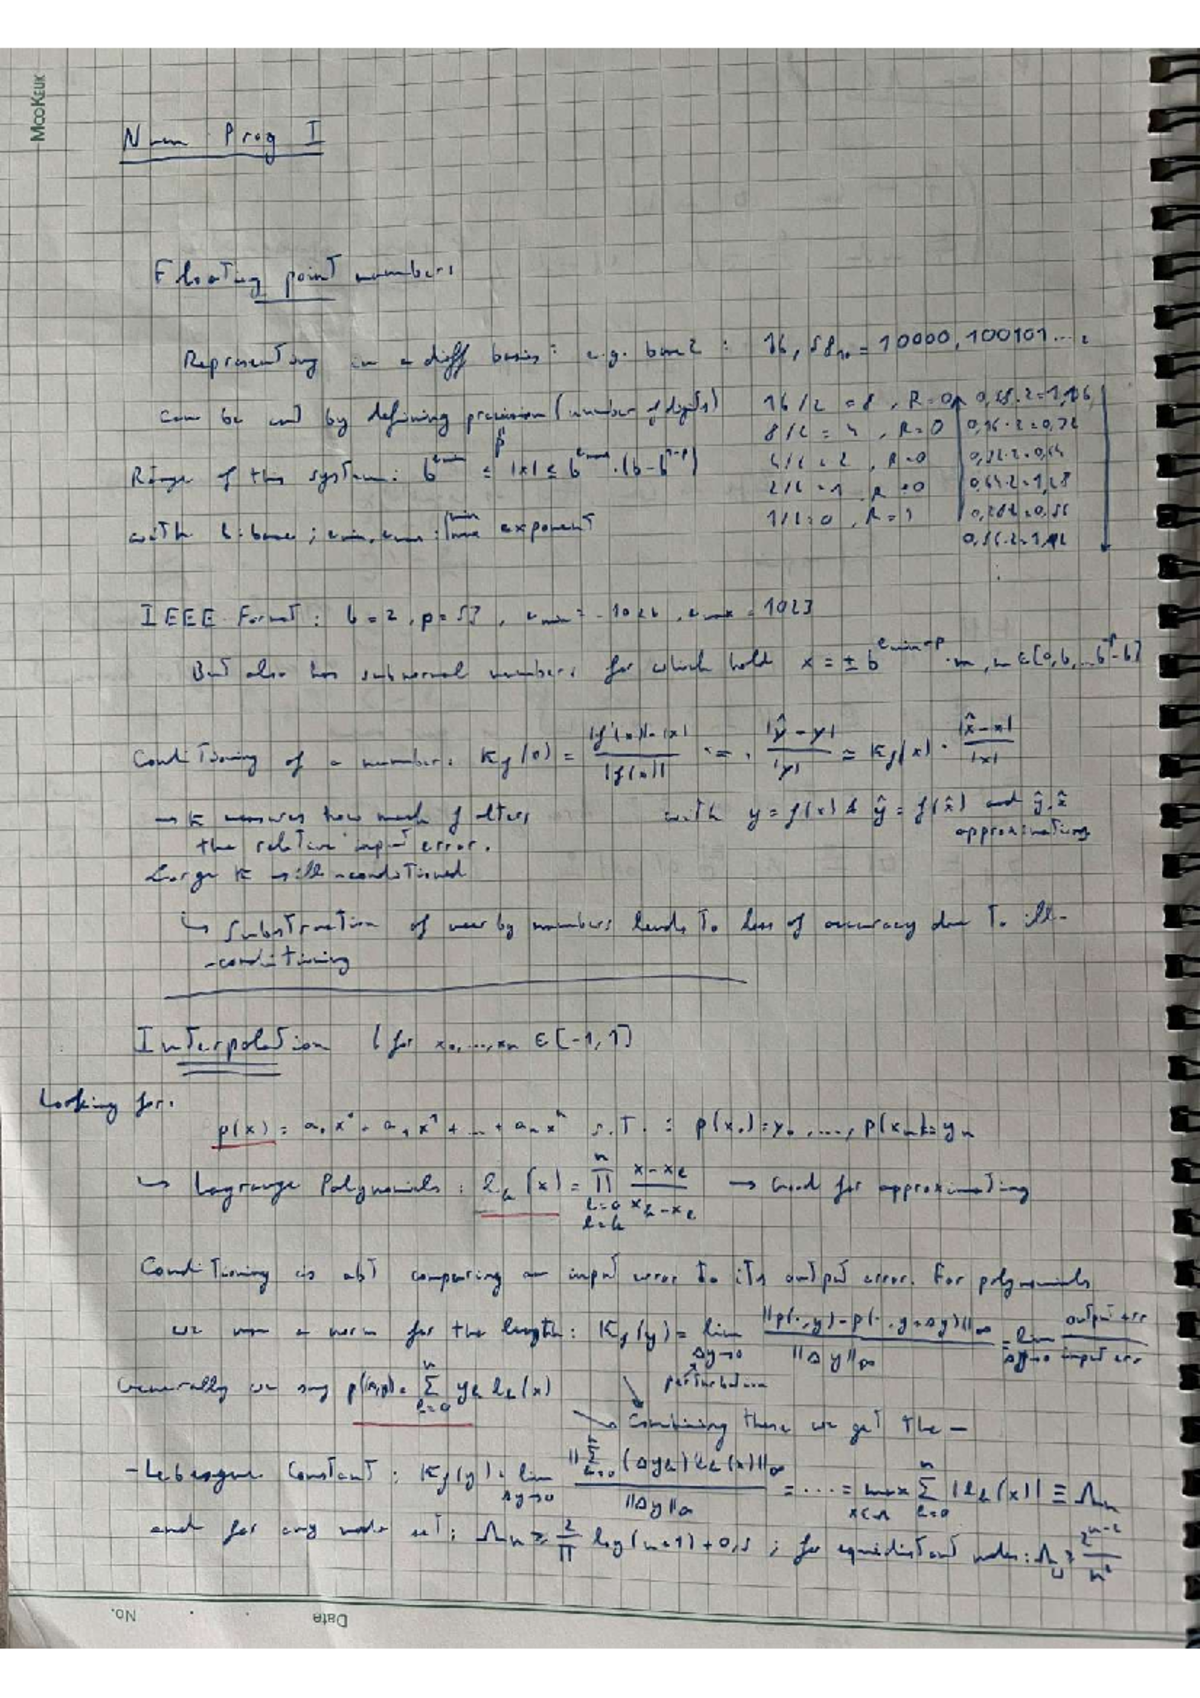 MooKeuk
Num Prog I
Floating point numbers
Representing in a diff basis: e.g. base 2 : 16,58₁₀ = 10000,100101...₂
can be cut by defining precision (number of digits) 16/2 = 8 , R=0 0,58·2=1,16
p 8/2 = 4 , R=0 0,16·2=0,32
Range of this system: b^emin ≤ |x| ≤ b^emax · (b-b^1-p) 4/2 = 2 , R=0 0,32·2=0,64
2/2 = 1 R=0 0,64·2=1,28
with b: base ; emin, emax : min/max exponent 1/2=0 , R=1 0,28·2=0,56
0,56·2=1,12
IEEE Format : b=2 , p=53 , emin = -1022 , emax = 1023
But also has subnormal numbers for which hold x = ± b^emin-p · m , m ∈
Conditioning of a number: K_f(x) = |f'(x)|·|x| / |f(x)| |ŷ-y| / |y| ≈ K_f(x) · |x̂-x| / |x|
→ K measures how much f alters with y = f(x) & ŷ = f(x̂) and ŷ, x̂
the relative input error. approximations
Large K → ill-conditioned
↳ Substraction of nearby numbers leads to loss of accuracy due to ill-
-conditioning
Interpolation ( for x₀,...,xₙ ∈ [-1,1]
Looking for:
p(x) = a₀x⁰ + a₁x¹ + ... + aₙxⁿ s.T. : p(x₀)=y₀, ..., p(xₙ)=yₙ
↳ Lagrange Polynomials : l_k(x) = n ∏ x-x_l / x_k-x_l → Good for approximating
l=0
l≠k
Conditioning is abt comparing an input error to its output error. For polynomials
we use a norm for the length: K_f(y) = lim Δy→0 ||p(·,y)-p(·,y+Δy)||∞ / ||Δy||∞ = lim Δy→0 output err / input err
perturbation
Generally we say = n Σ k=0 y_k l_k(x)
Combining these we get the -
- Lebesgue Constant : K_f(y) = lim Δy→0 ||n Σ k=0 (Δy_k) l_k(x)||∞ / ||Δy||∞ = ... = max n Σ k=0 |l_k(x)| ≡ Λₙ
and for any node set: Λₙ ≥ 2/π log(n+1)+0,5 ; for equidistant nodes: Λₙ ≥ 2^n-2 / n²
No. Date